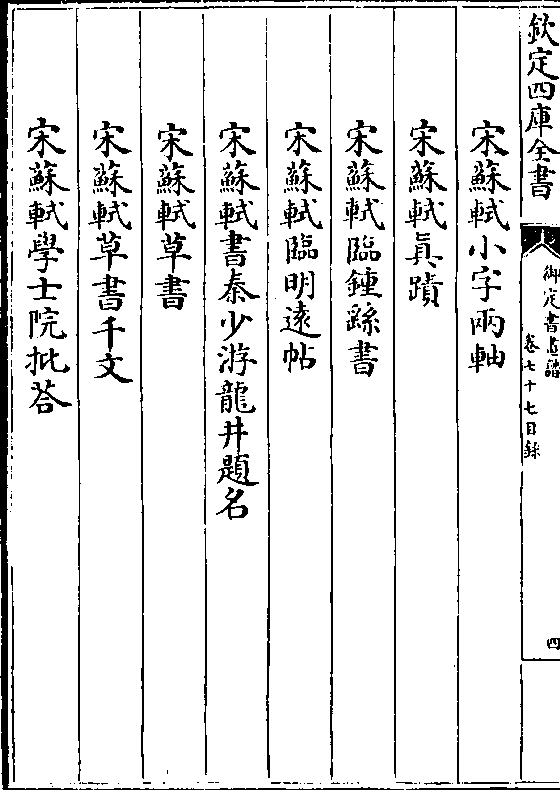 欽定四庫全書
御定書畫譜
卷七十七目錄
四
宋蘇軾小字兩軸
宋蘇軾真蹟
宋蘇軾臨鍾繇書
宋蘇軾臨明遠帖
宋蘇軾書秦少游龍井題名
宋蘇軾草書
宋蘇軾草書千文
宋蘇軾學士院批荅